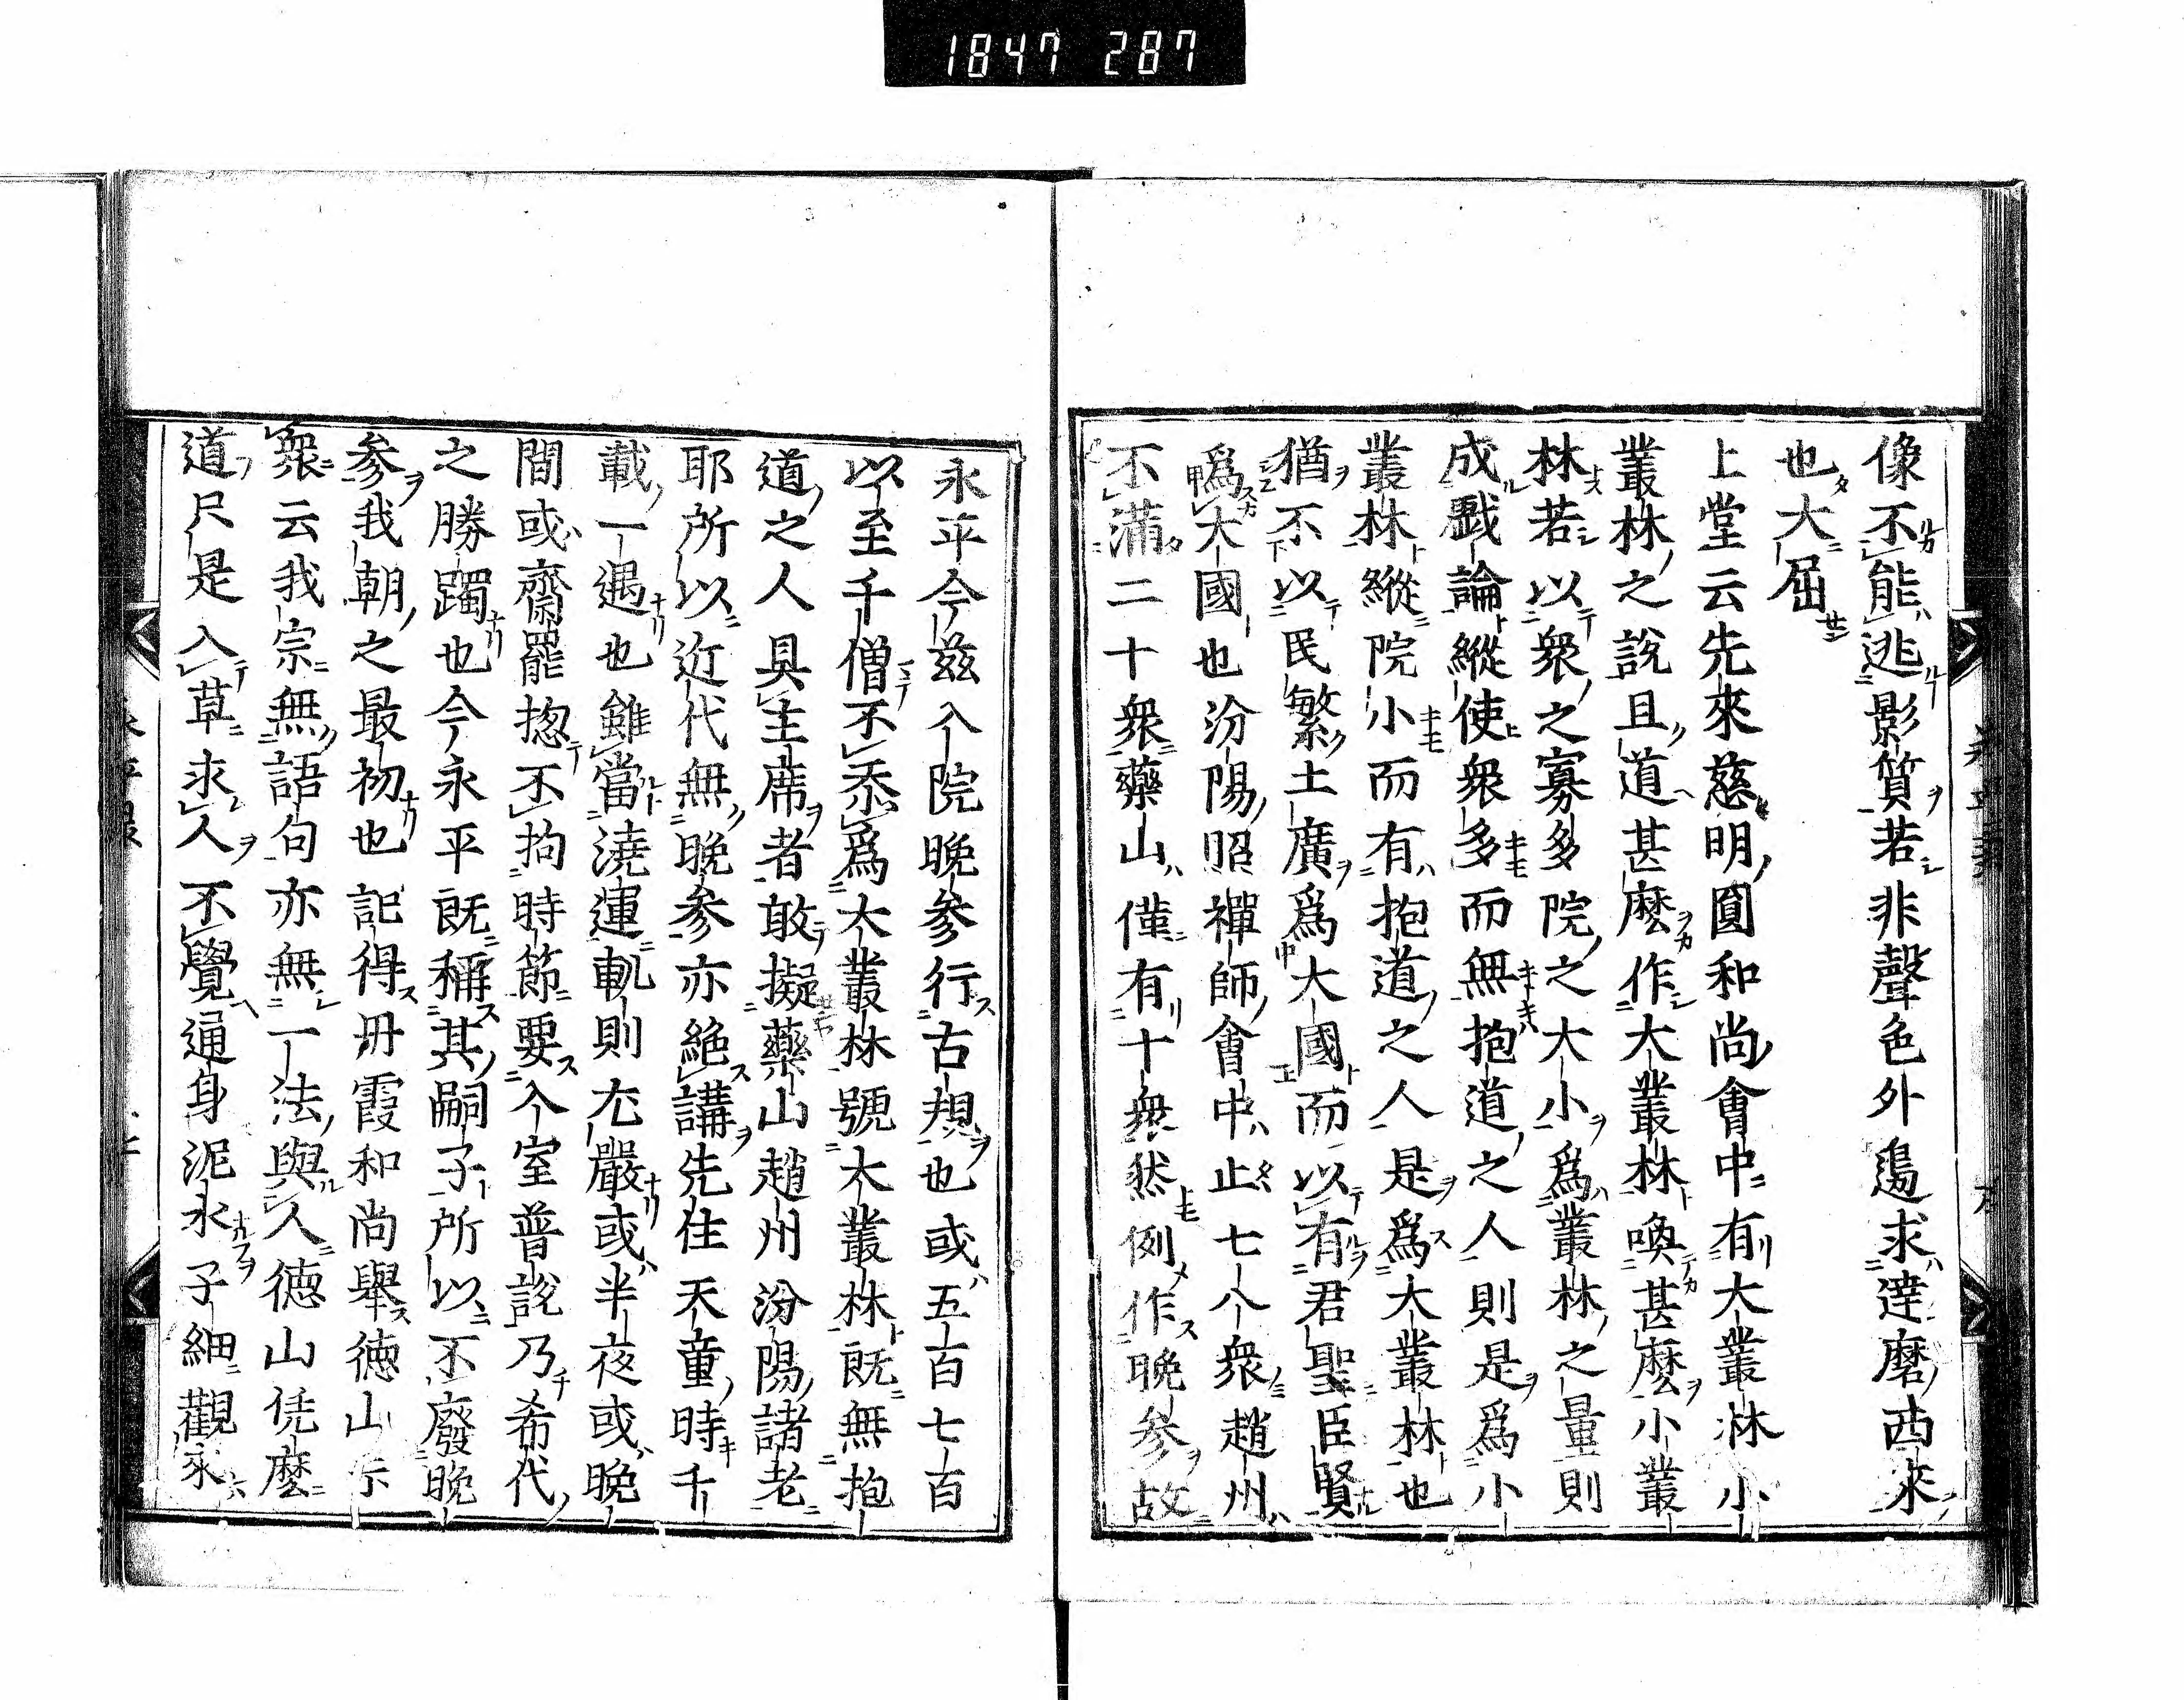 1847 287
像不能逃影質若非聲色外邉求達磨西來
也大屈
上堂云先來慈明圓和尚會中有大叢林小
叢林之說且道甚麽作大叢林喚甚麽小叢
林若以衆之寡多院之大小爲叢林之量則
成戲論縱使衆多而無抱道之人則是爲小
叢林縱院小而有抱道之人是爲大叢林也
猶不以民繁土廣爲大國而以有君聖臣賢
爲大國也汾陽昭禪師會中止七八衆趙州
不滿二十衆藥山僅有十衆然例作晚参故
永平今玆入院晚参行古規也或五百七百
以至千僧不忝爲大叢林號大叢林既無抱
道之人具主席者敢擬藥山趙州汾陽諸老
耶所以近代無晚参亦絶講先住天童時千
載一遇也雖當澆運軌則尤嚴或半夜或晚
間或齋罷揔不拘時節要入室普說乃希代
之勝躅也今永平既稱其嗣子所以不廢晚
参我朝之最初也記得丹霞和尚舉德山示
衆云我宗無語句亦無一法與人德山恁麽
道只是入草求人不覺通身泥水子細觀來